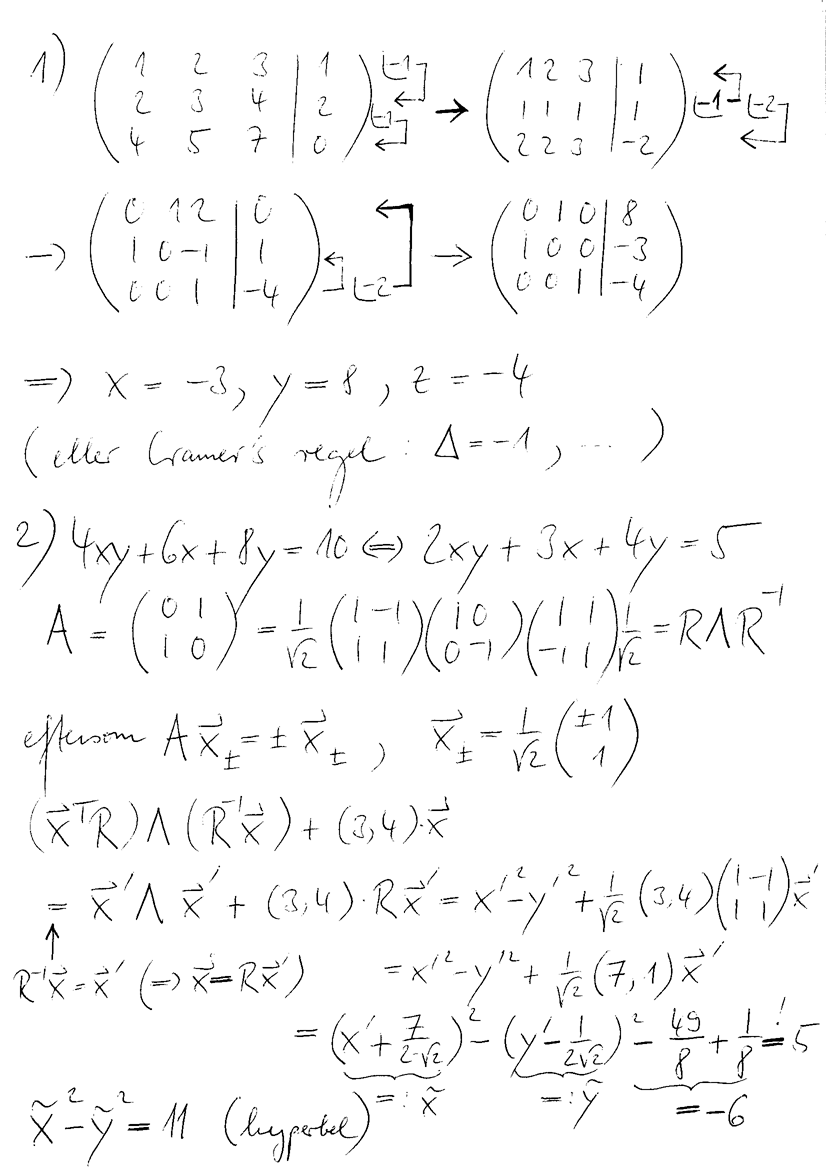 1) ( 1 2 3 | 1 ) ⌊-1 → ( 1 2 3 | 1 )
( 2 3 4 | 2 ) ⌊-1 ( 1 1 1 | 1 ) ⌊-1 ⌊-2
( 4 5 7 | 0 ) ( 2 2 3 | -2 )
→ ( 0 1 2 | 0 ) → ( 0 1 0 | 8 )
( 1 0 -1 | 1 ) ( 1 0 0 | -3 )
( 0 0 1 | -4 ) ⌊-2 ( 0 0 1 | -4 )
⇒ x = -3, y = 8, z = -4
(eller Cramer's regel: Δ = -1, ... )
2) 4xy + 6x + 8y = 10 ⇔ 2xy + 3x + 4y = 5
A = (0 1; 1 0) = 1/√2 (1 -1; 1 1) (1 0; 0 -1) (1 1; -1 1) 1/√2 = RΛR⁻¹
eftersom A x⃗± = ± x⃗±, x⃗± = 1/√2 (±1; 1)
(x⃗ᵀR)Λ(R⁻¹x⃗) + (3,4)·x⃗
= x⃗'Λx⃗' + (3,4)·Rx⃗' = x'² - y'² + 1/√2 (3,4) (1 -1; 1 1) x⃗'
↑
R⁻¹x⃗ = x⃗' (⇒ x⃗ = Rx⃗') = x'² - y'² + 1/√2 (7,1) x⃗'
= (x' + 7/(2·√2))² - (y' - 1/(2√2))² - 49/8 + 1/8 =! 5
=: x̃ =: ỹ = -6
x̃² - ỹ² = 11 (hyperbel)